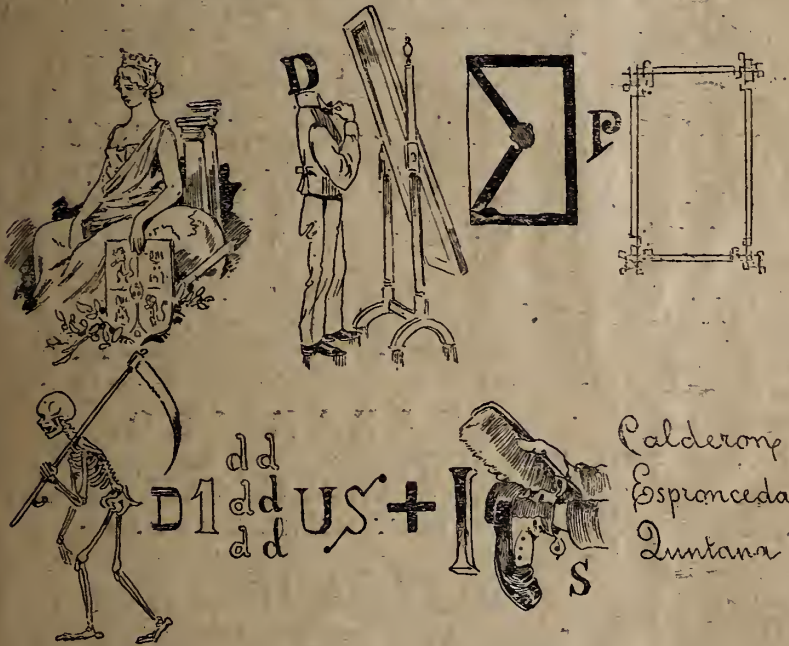 D
P
d d
D 1 d d US + I
d d
S
Calderon
Espronceda
Quntana